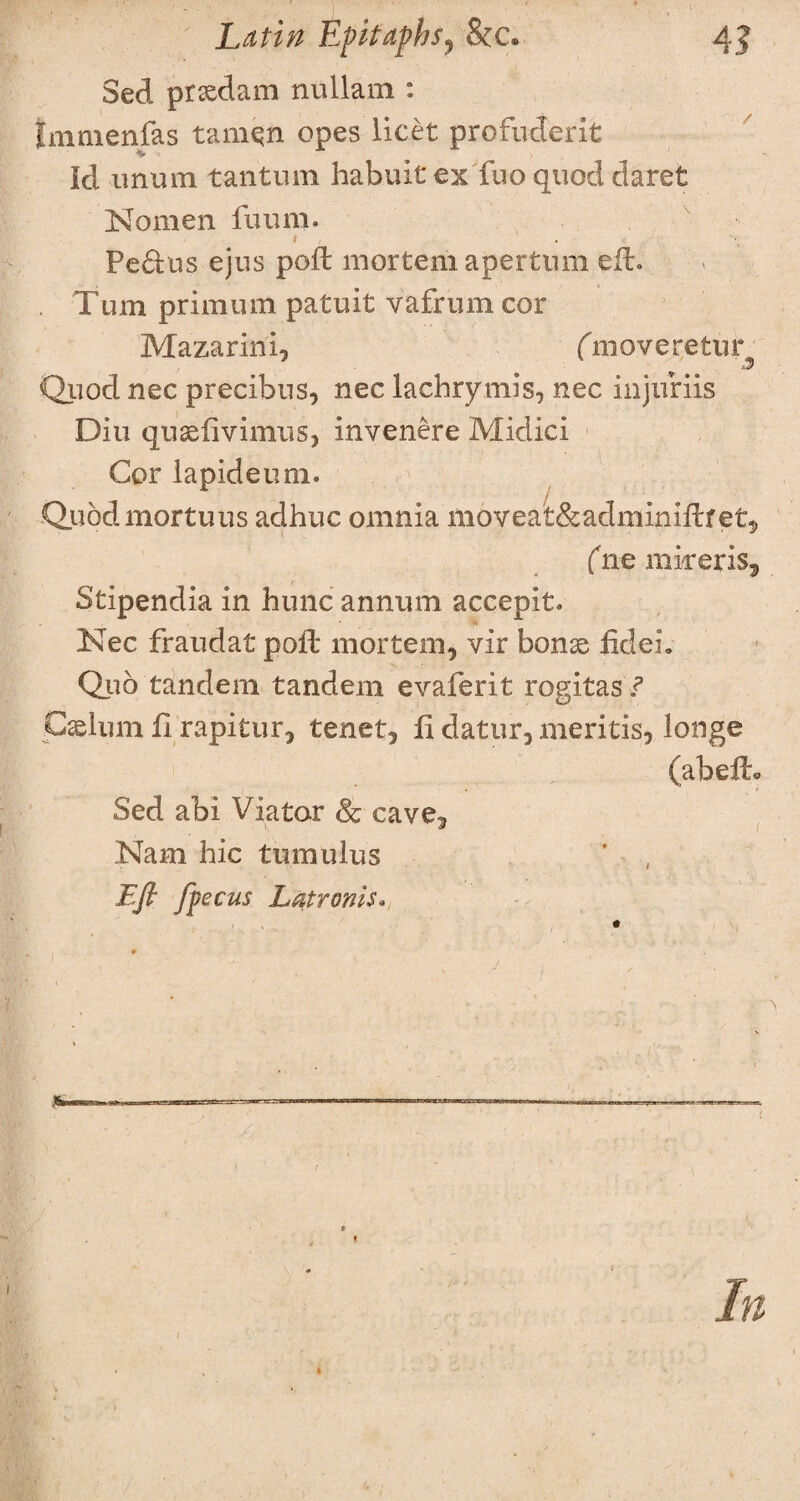 Latin Epitaphs, &c. 43
Sed prædam nullam :
Immenſas tamen opes licèt profuderit
Id unum tantum habuit ex ſuo quod daret
Nomen ſuum.
Pectus ejus poſt mortem apertum eſt.
Tum primum patuit vafrum cor
Mazarini, (moveretur,
Quod nec precibus, nec lachrymis, nec injuriis
Diu quæſivimus, invenêre Midici
Cor lapideum.
Quòd mortuus adhuc omnia moveat&adminiſtret,
(ne mireris,
Stipendia in hunc annum accepit.
Nec fraudat poſt mortem, vir bonæ fidei.
Quò tandem tandem evaſerit rogitas ?
Cælum ſi rapitur, tenet, ſi datur, meritis, longe
(abeſt.
Sed abi Viator & cave,
Nam hic tumulus
Eſt ſpecus Latronis.
In